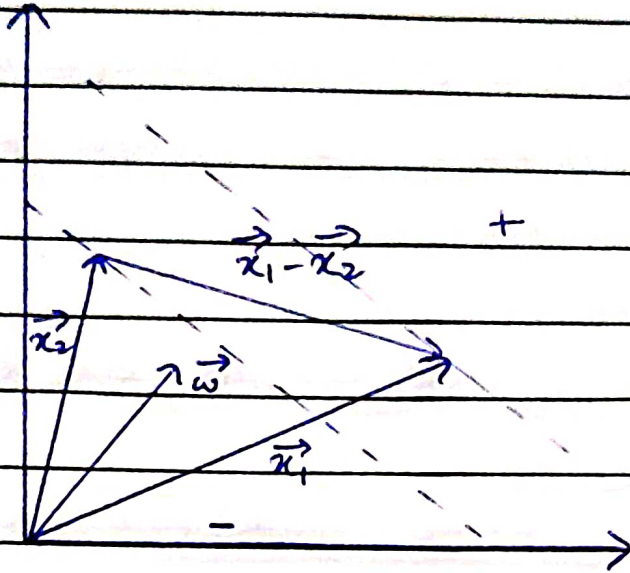 +
x⃗₁ - x⃗₂
x⃗₂
w⃗
x⃗₁
-